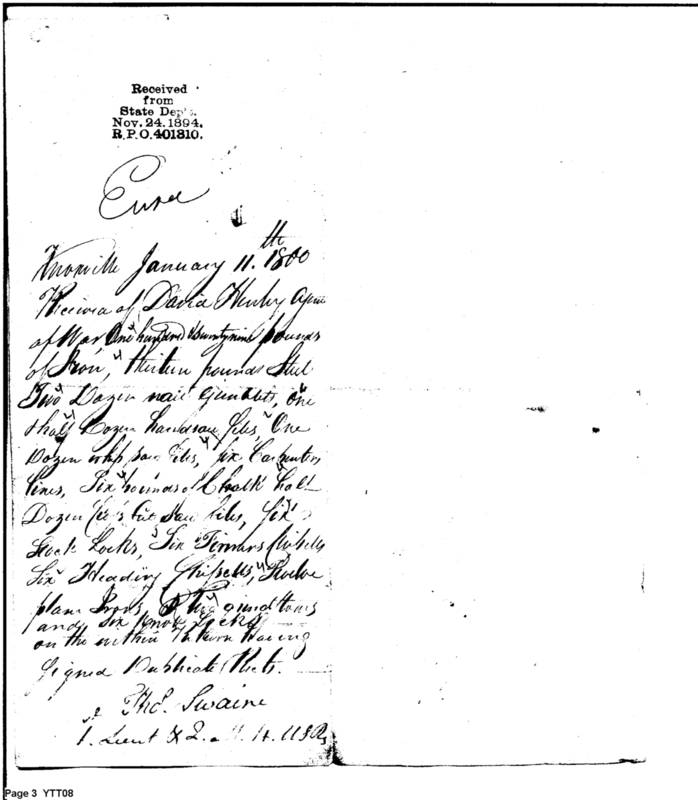 Received
from
State Dep't.
Nov. 24. 1894.
R.P.O. 401310.
Knoxville January 11.th 1800
Received of David Henley Agent
of War, One hundred & twenty nine pounds
of Iron, thirteen pounds Steel
Two Dozen nail Gimblets, One
half Dozen handsaw files, One
Dozen whip saw files, Six Carpenters
lines, Six pounds of Chalk half
Dozen Cut Saw files, Six
Stock Locks, Six Firmers Chissells
Six Heading Chissells, Twelve
plane Irons, Two grindstones
and Six Knob Locks
on the within Return having
Signed Duplicate Rects.
Thos. Swaine
1. Lieut & Q. M. 4. U S R
Page 3 YTT08